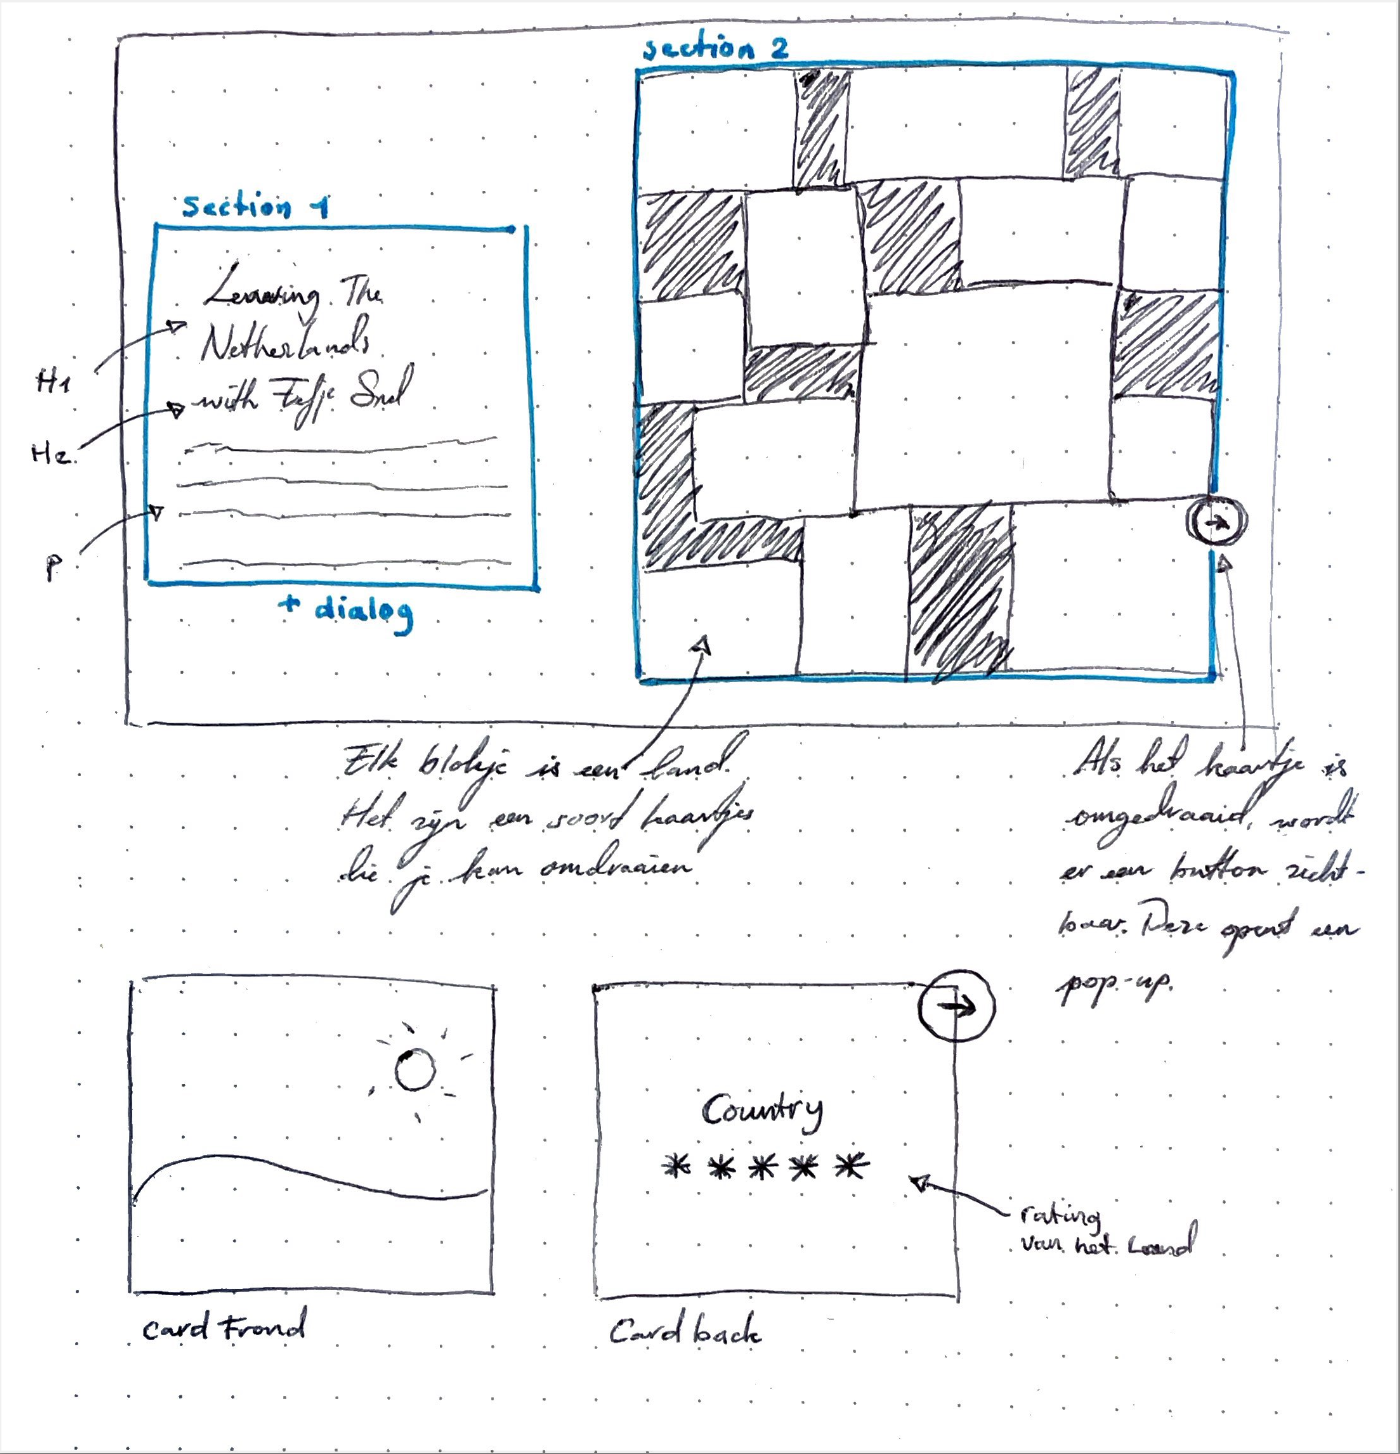 section 2
section 1
Leaving The
Netherlands
with Eefje Snel
H1
H2
P
+ dialog
Elk blokje is een land.
Het zijn een soort kaartjes
die je kan omdraaien
Als het kaartje is
omgedraaid, wordt
er een button zicht-
baar. Deze opent een
pop-up.
Country
*****
rating
van het Land
Card Frond
Card back